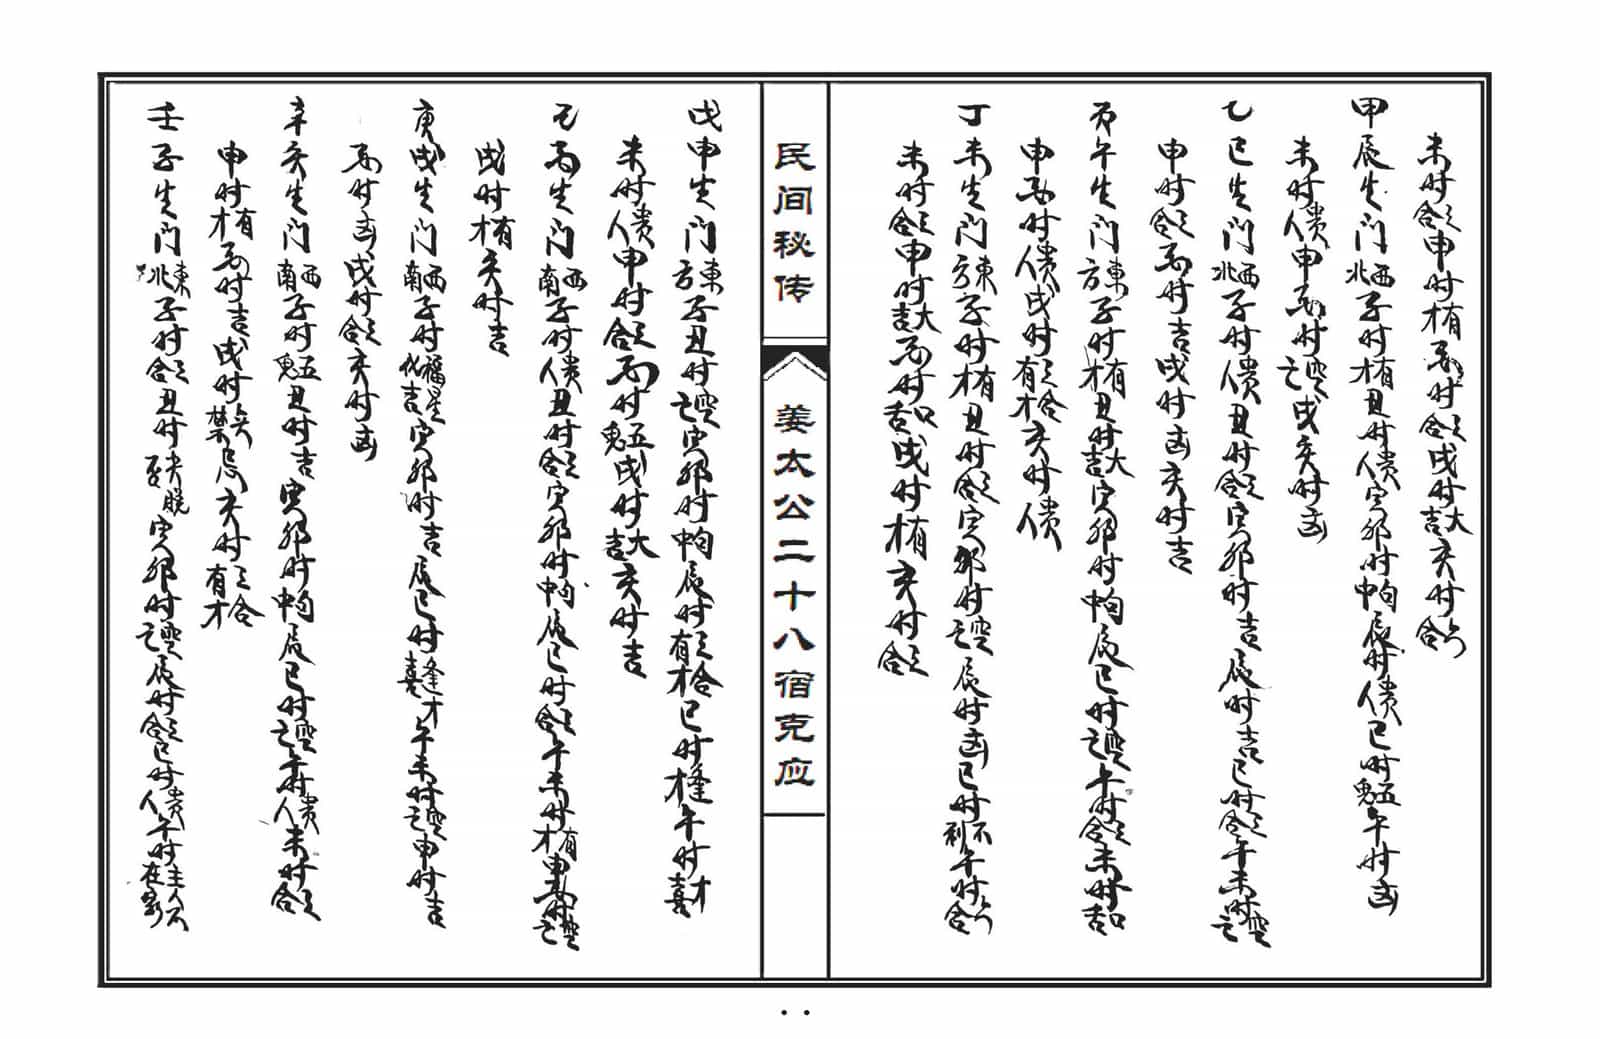 未时三合申时有才酉时三合戌时大吉亥时六合
甲辰生门西北子时有才丑时贵人寅卯时中旬辰时贵人巳时五鬼午时凶
未时贵人申酉时空亡戌亥时凶
乙巳生门西北子时贵人丑时三合寅卯时吉辰时吉巳时三合午未时空亡
申时三合酉时吉戌时凶亥时吉
丙午生门東方子时有才丑时大吉寅卯时中旬辰巳时空亡午时三合未时口舌
申酉时贵人戌时三合有才亥时贵人
丁未生门東方子时有才丑时三合寅卯时空亡辰时凶巳时不利午时六合
未时三合申时大吉酉时口舌戌时有才亥时三合
民间秘传
姜太公二十八宿克应
戊申生门東方子丑时空亡寅卯时中旬辰时三合有才巳时逢才午时才喜
未时贵人申时三合酉时五鬼戌时大吉亥时吉
己酉生门西南子时贵人丑时三合寅卯时中旬辰巳时三合午未时有才申酉时空亡
戌时有才亥时吉
庚戌生门西南子时福星化吉寅卯时吉辰巳时逢才喜午未时空亡申时吉
酉时凶戌时三合亥时凶
辛亥生门西南子时五鬼丑时吉寅卯时中旬辰巳时空亡午时贵人未时三合
申时有才酉时吉戌时禁忌亥时三合有才
壬子生门東北子时三合丑时寅卯时空亡辰时三合巳时贵人午时主人不在家